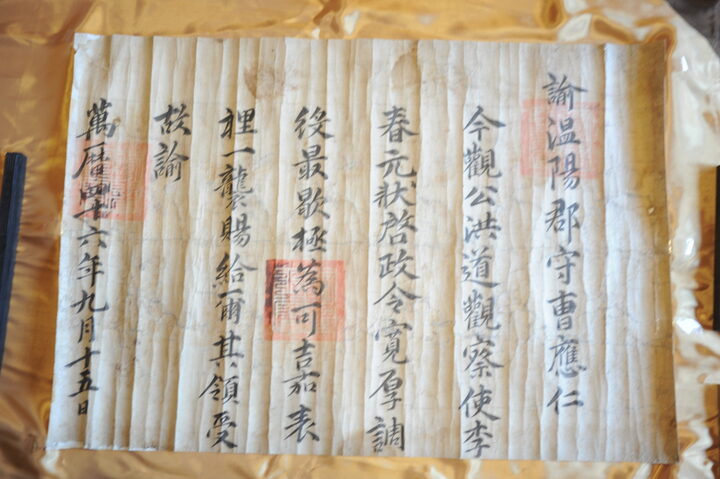 諭温陽郡守曺應仁
今觀公洪道觀察使李
春元狀啓政令寬厚調
役最歇極爲可嘉表
裡一襲賜給爾其領受
故諭
萬曆四十六年九月十五日